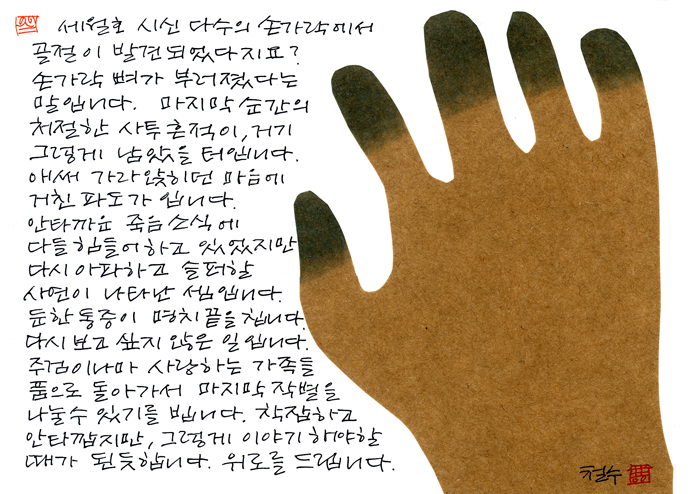 세월호 시신 다수의 손가락에서
골절이 발견되었다지요?
손가락 뼈가 부러졌다는
말입니다. 마지막 순간의
처절한 사투 흔적이, 거기
그렇게 남았을 터입니다.
애써 가라앉히던 마음에
거친 파도가 입니다.
안타까운 죽음 소식에
다들 힘들어하고 있었지만
다시 아파하고 슬퍼할
사연이 나타난 셈입니다.
둔한 통증이 명치 끝을 칩니다.
다시 보고 싶지 않은 일입니다.
주검이나마 사랑하는 가족들
품으로 돌아가서 마지막 작별을
나눌 수 있기를 빕니다. 착잡하고
안타깝지만, 그렇게 이야기 해야할
때가 된듯합니다. 위로를 드립니다.
철수